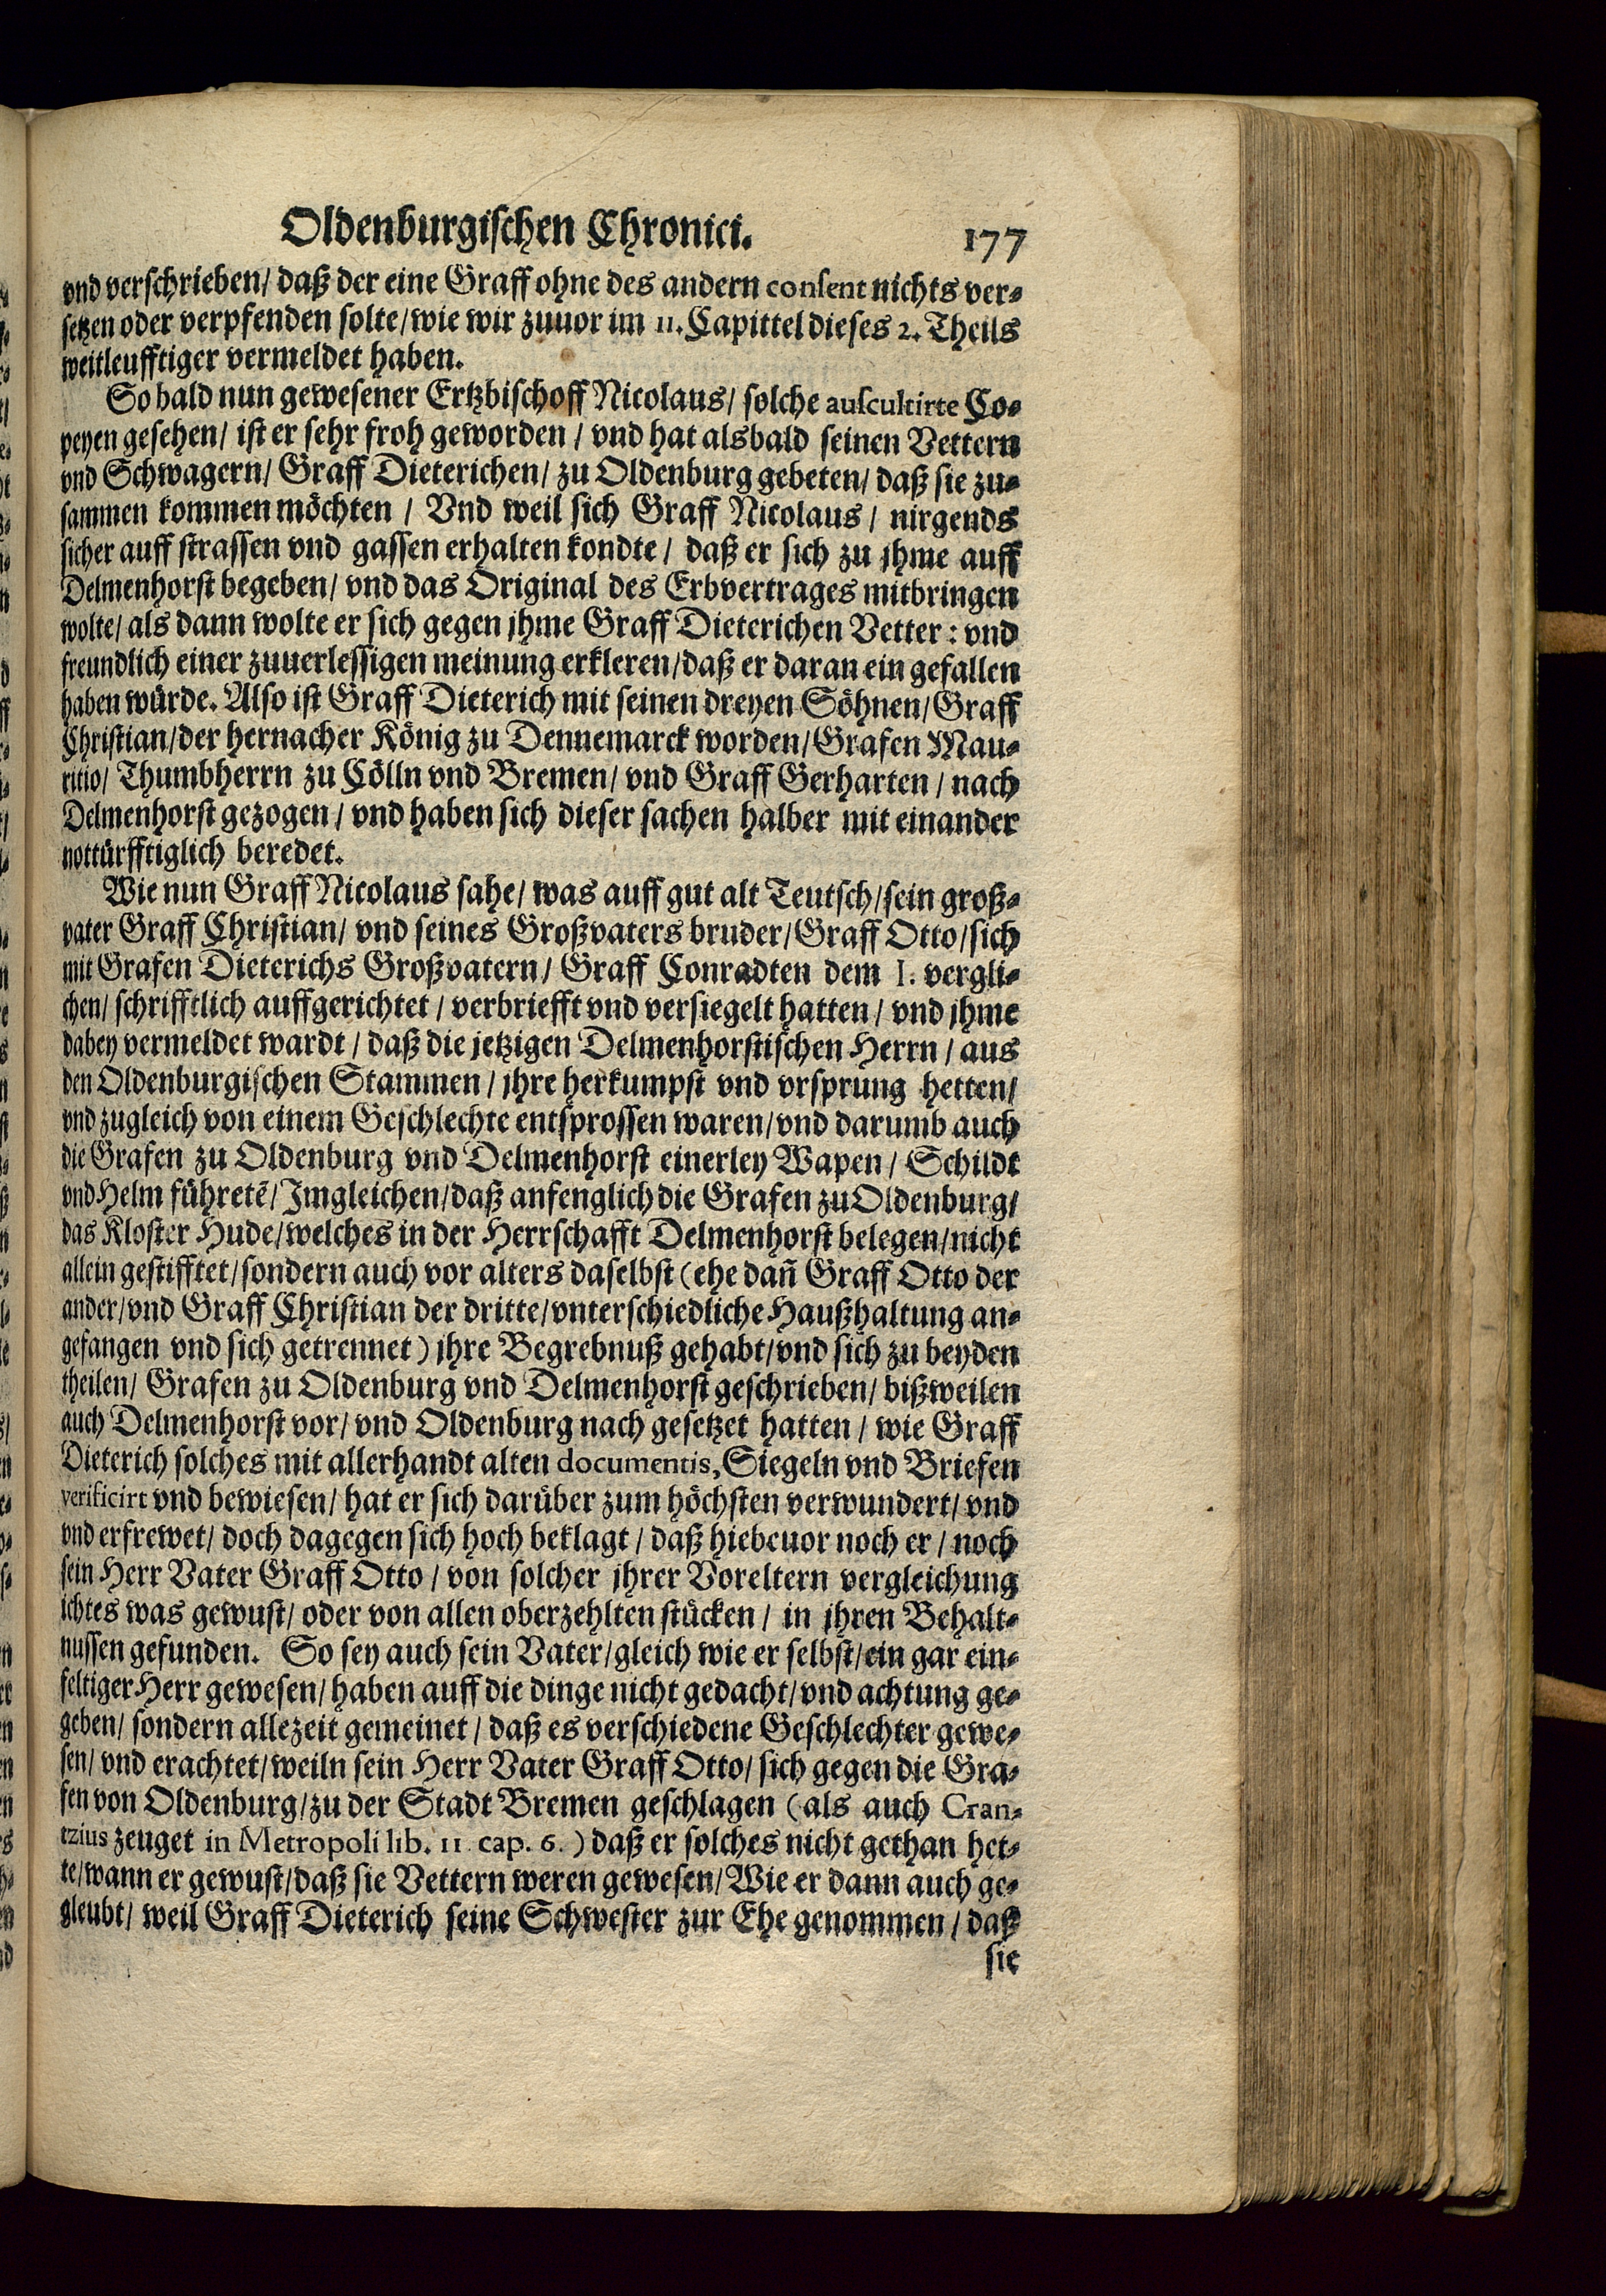 Oldenburgischen Chronici. 177
vnd verschrieben/ daß der eine Graff ohne des andern consent nichts ver-
setzen oder verpfenden solte/ wie wir zuuor im 11. Capittel dieses 2. Theils
weitleufftiger vermeldet haben.
So bald nun gewesener Ertzbischoff Nicolaus/ solche auscultirte Co-
peyen gesehen/ ist er sehr froh geworden / vnd hat alsbald seinen Vettern
vnd Schwagern/ Graff Dieterichen/ zu Oldenburg gebeten/ daß sie zu-
sammen kommen möchten / Vnd weil sich Graff Nicolaus / nirgends
sicher auff strassen vnd gassen erhalten kondte / daß er sich zu jhme auff
Delmenhorst begeben/ vnd das Original des Erbvertrages mitbringen
wolte/ als dann wolte er sich gegen jhme Graff Dieterichen Vetter: vnd
freundlich einer zuuerlessigen meinung erkleren/ daß er daran ein gefallen
haben würde. Also ist Graff Dieterich mit seinen dreyen Söhnen/ Graff
Christian/ der hernacher König zu Dennemarck worden/ Grafen Mau-
ritio/ Thumbherrn zu Cölln vnd Bremen/ vnd Graff Gerharten / nach
Delmenhorst gezogen / vnd haben sich dieser sachen halber mit einander
nottürfftiglich beredet.
Wie nun Graff Nicolaus sahe/ was auff gut alt Teutsch/ sein groß-
vater Graff Christian/ vnd seines Großvaters bruder/ Graff Otto/ sich
mit Grafen Dieterichs Großvatern/ Graff Conradten dem I. vergli-
chen/ schrifftlich auffgerichtet / verbriefft vnd versiegelt hatten / vnd jhme
dabey vermeldet wardt / daß die jetzigen Delmenhorstischen Herrn / aus
den Oldenburgischen Stammen / jhre herkumpst vnd vrsprung hetten/
vnd zugleich von einem Geschlechte entsprossen waren/ vnd darumb auch
die Grafen zu Oldenburg vnd Delmenhorst einerley Wapen / Schildt
vnd Helm führetē/ Imgleichen/ daß anfenglich die Grafen zu Oldenburg/
das Kloster Hude/ welches in der Herrschafft Delmenhorst belegen/ nicht
allein gestifftet/ sondern auch vor alters daselbst (ehe dañ Graff Otto der
ander/ vnd Graff Christian der dritte/ vnterschiedliche Haußhaltung an-
gefangen vnd sich getrennet) jhre Begrebnuß gehabt/ vnd sich zu beyden
theilen/ Grafen zu Oldenburg vnd Delmenhorst geschrieben/ bißweilen
auch Delmenhorst vor/ vnd Oldenburg nach gesetzet hatten / wie Graff
Dieterich solches mit allerhandt alten documentis, Siegeln vnd Briefen
verificirt vnd bewiesen/ hat er sich darüber zum höchsten verwundert/ vnd
vnd erfrewet/ doch dagegen sich hoch beklagt / daß hiebeuor noch er / noch
sein Herr Vater Graff Otto / von solcher jhrer Voreltern vergleichung
ichtes was gewust/ oder von allen oberzehlten stücken / in jhren Behalt-
nussen gefunden. So sey auch sein Vater/ gleich wie er selbst/ ein gar ein-
feltiger Herr gewesen/ haben auff die dinge nicht gedacht/ vnd achtung ge-
geben/ sondern allezeit gemeinet / daß es verschiedene Geschlechter gewe-
sen/ vnd erachtet/ weiln sein Herr Vater Graff Otto/ sich gegen die Gra-
fen von Oldenburg/ zu der Stadt Bremen geschlagen (als auch Cran-
tzius zeuget in Metropoli lib. 11 cap. 6. ) daß er solches nicht gethan het-
te/ wann er gewust/ daß sie Vettern weren gewesen/ Wie er dann auch ge-
gleubt/ weil Graff Dieterich seine Schwester zur Ehe genommen / daß
sie